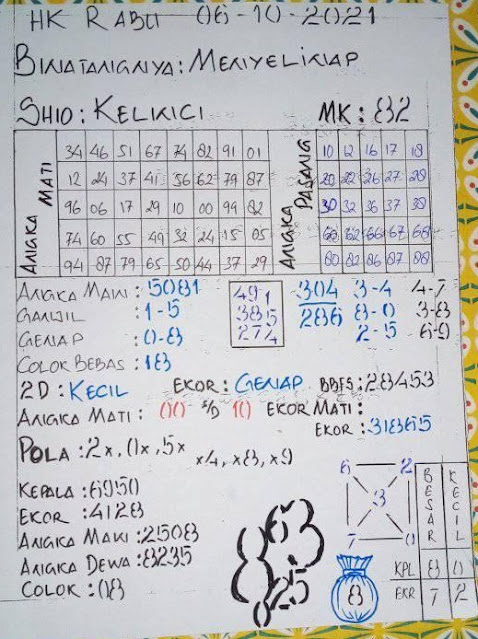 HK RABU 06-10-2021
BINATANGNYA: MENYELINAP
SHIO: KELINCI MK: 82
ANGKA MATI
34 46 51 67 74 82 91 01
12 24 37 41 56 62 79 87
96 06 17 29 10 00 94 82
74 60 55 49 32 24 15 05
94 87 79 65 50 44 37 29
ANGKA PASANG
10 12 16 17 18
20 22 26 27 28
30 32 36 37 38
60 62 66 67 68
80 82 86 87 88
ANGKA MAIN: 5081
GANJIL: 1-5
GENAP: 0-8
COLOK BEBAS: 18
491
385
274
304
286
3-4
8-0
2-5
4-7
3-8
6-9
2D: KECIL EKOR: GENAP BBFS: 28453
ANGKA MATI: 00 S/D 10 EKOR MATI:
EKOR: 31865
POLA: 2x, 0x, 5x x4, x8, x9
KEPALA: 6950
EKOR: 4128
ANGKA MAIN: 2508
ANGKA DEWA: 8235
COLOK: 08
6 2
3
7 0
8
BESAR KECIL
KPL 8 0
EKR 7 2